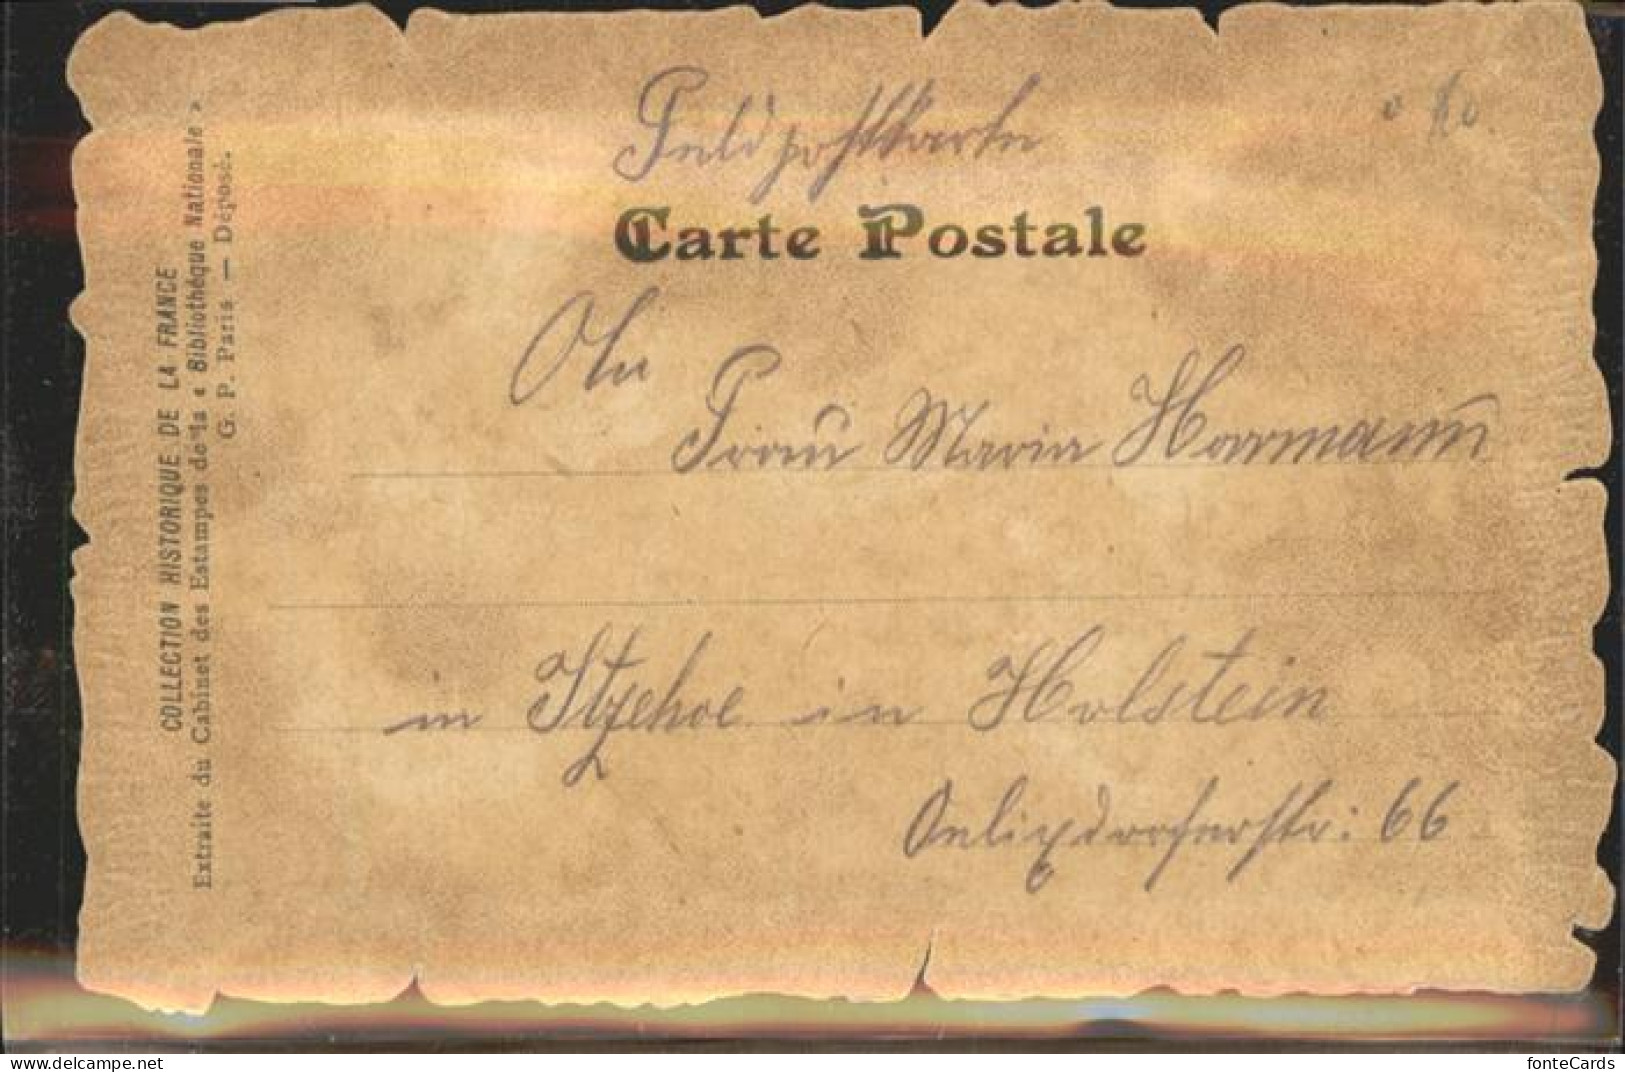 Feldpostkarte
Carte Postale
An
Frau Maria Harmann
in Itzehoe in Holstein
Oelixdorferstr: 66
COLLECTION HISTORIQUE DE LA FRANCE
Extraite du Cabinet des Estampes de la « Bibliothèque Nationale »
G. P. Paris — Déposé.
www.delcampe.net
fonteCards